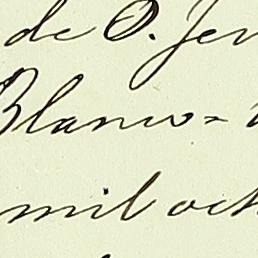 de D. Jer
Blanco=
mil och